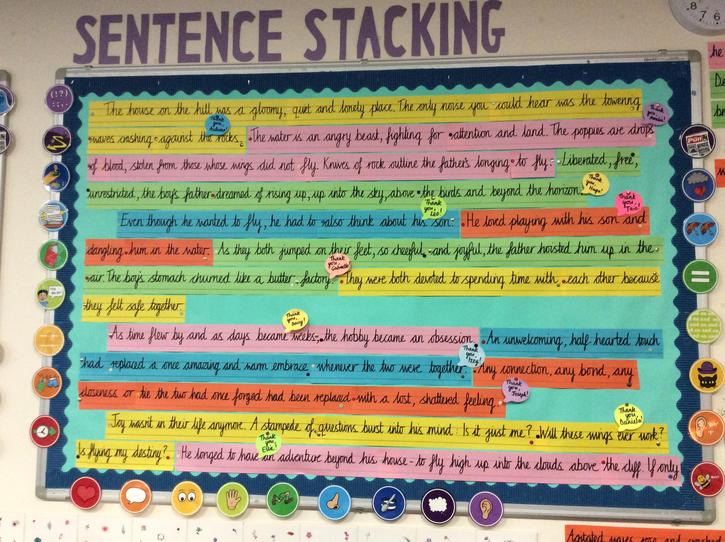 SENTENCE STACKING
The house on the hill was a gloomy, quiet and lonely place. The only noise you could hear was the towering
waves crashing against the rocks. The water is an angry beast, fighting for attention and land. The poppies are drops
of blood, stolen from those whose wings did not fly. Knives of rock outline the father's longing to fly. Liberated, free,
unrestricted, the boy's father dreamed of rising up, up into the sky, above the birds and beyond the horizon.
Even though he wanted to fly, he had to also think about his son. He loved playing with his son and
dangling him in the water. As they both jumped on their feet, so cheeful and joyful, the father hoisted him up in the
air. The boy's stomach churned like a butter factory. They were both devoted to spending time with each other because
they felt safe together.
As time flew by and as days became weeks, the hobby became an obsession. An unwelcoming, half-hearted touch
had replaced a once amazing and warm embrace whenever the two were together. Any connection, any bond, any
closeness or tie the two had once forged had been replaced with a lost, shattered feeling.
Joy wasn't in their life anymore. A stampede of questions bust into his mind. Is it just me? Will these wings ever work?
Is flying my destiny? He longed to have an adventure beyond his house - to fly high up into the clouds above the cliff. If only
Thank you,
Thank you
Thank you
Thank you
Leo!
Thank you
Thank you
Thank you,
Thank you
Thank you,
Thank you,
Thank you
Ella!
8
7 6
he
De
br